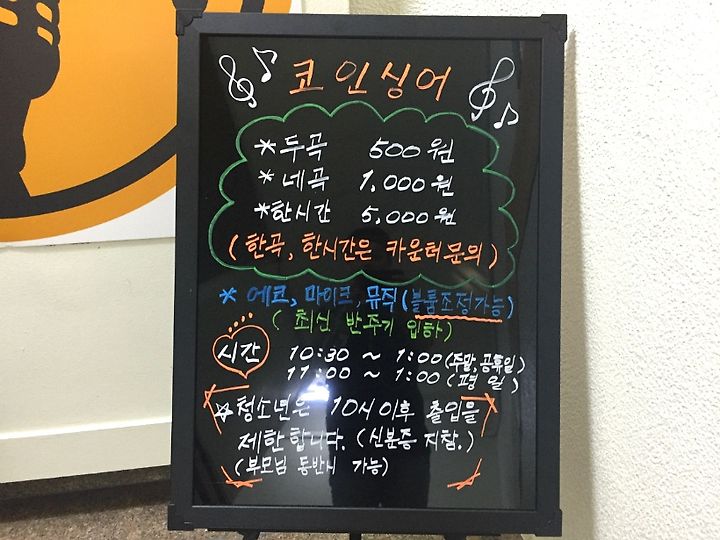 코인싱어
*두곡 500원
*네곡 1,000원
*한시간 5,000원
(한곡, 한시간은 카운터문의)
* 에코, 마이크, 뮤직(볼륨조정가능)
(최신 반주기 입하)
시간 10:30 ~ 1:00 (주말, 공휴일)
11:00 ~ 1:00 (평일)
☆청소년은 10시이후 출입을
제한합니다. (신분증 지참.)
(부모님 동반시 가능)